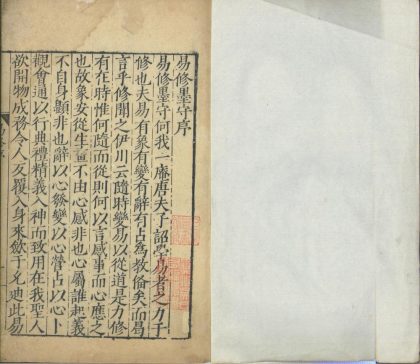 易修墨守序
易修墨守何我一庵唐夫子詔學易者之力于
修也夫易有象有變有辭有占為教備矣而曷
言乎修聞之伊川云隨時變易以從道是力修
有在時惟何隨而從則何以言感事而心應之
也故象安從生畫不由心感非也心屬誰起義
不自身顯非也辭以心發變以心營占以心卜
觀會通以行典禮精義入神而致用在我聖人
欲開物成務令人反覆入身來歛于允迪此易